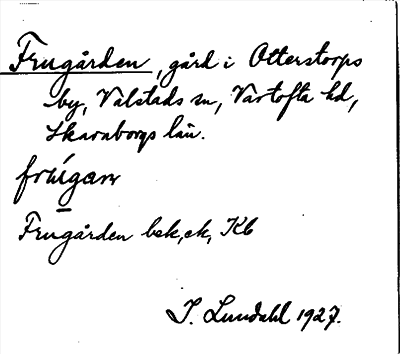 Frugården, gård i Otterstorps
by, Valstads sn, Vartofta hd,
Skaraborgs län.
frúgaɴ
Frugården bek, ek, Kb
I. Lundahl 1927.